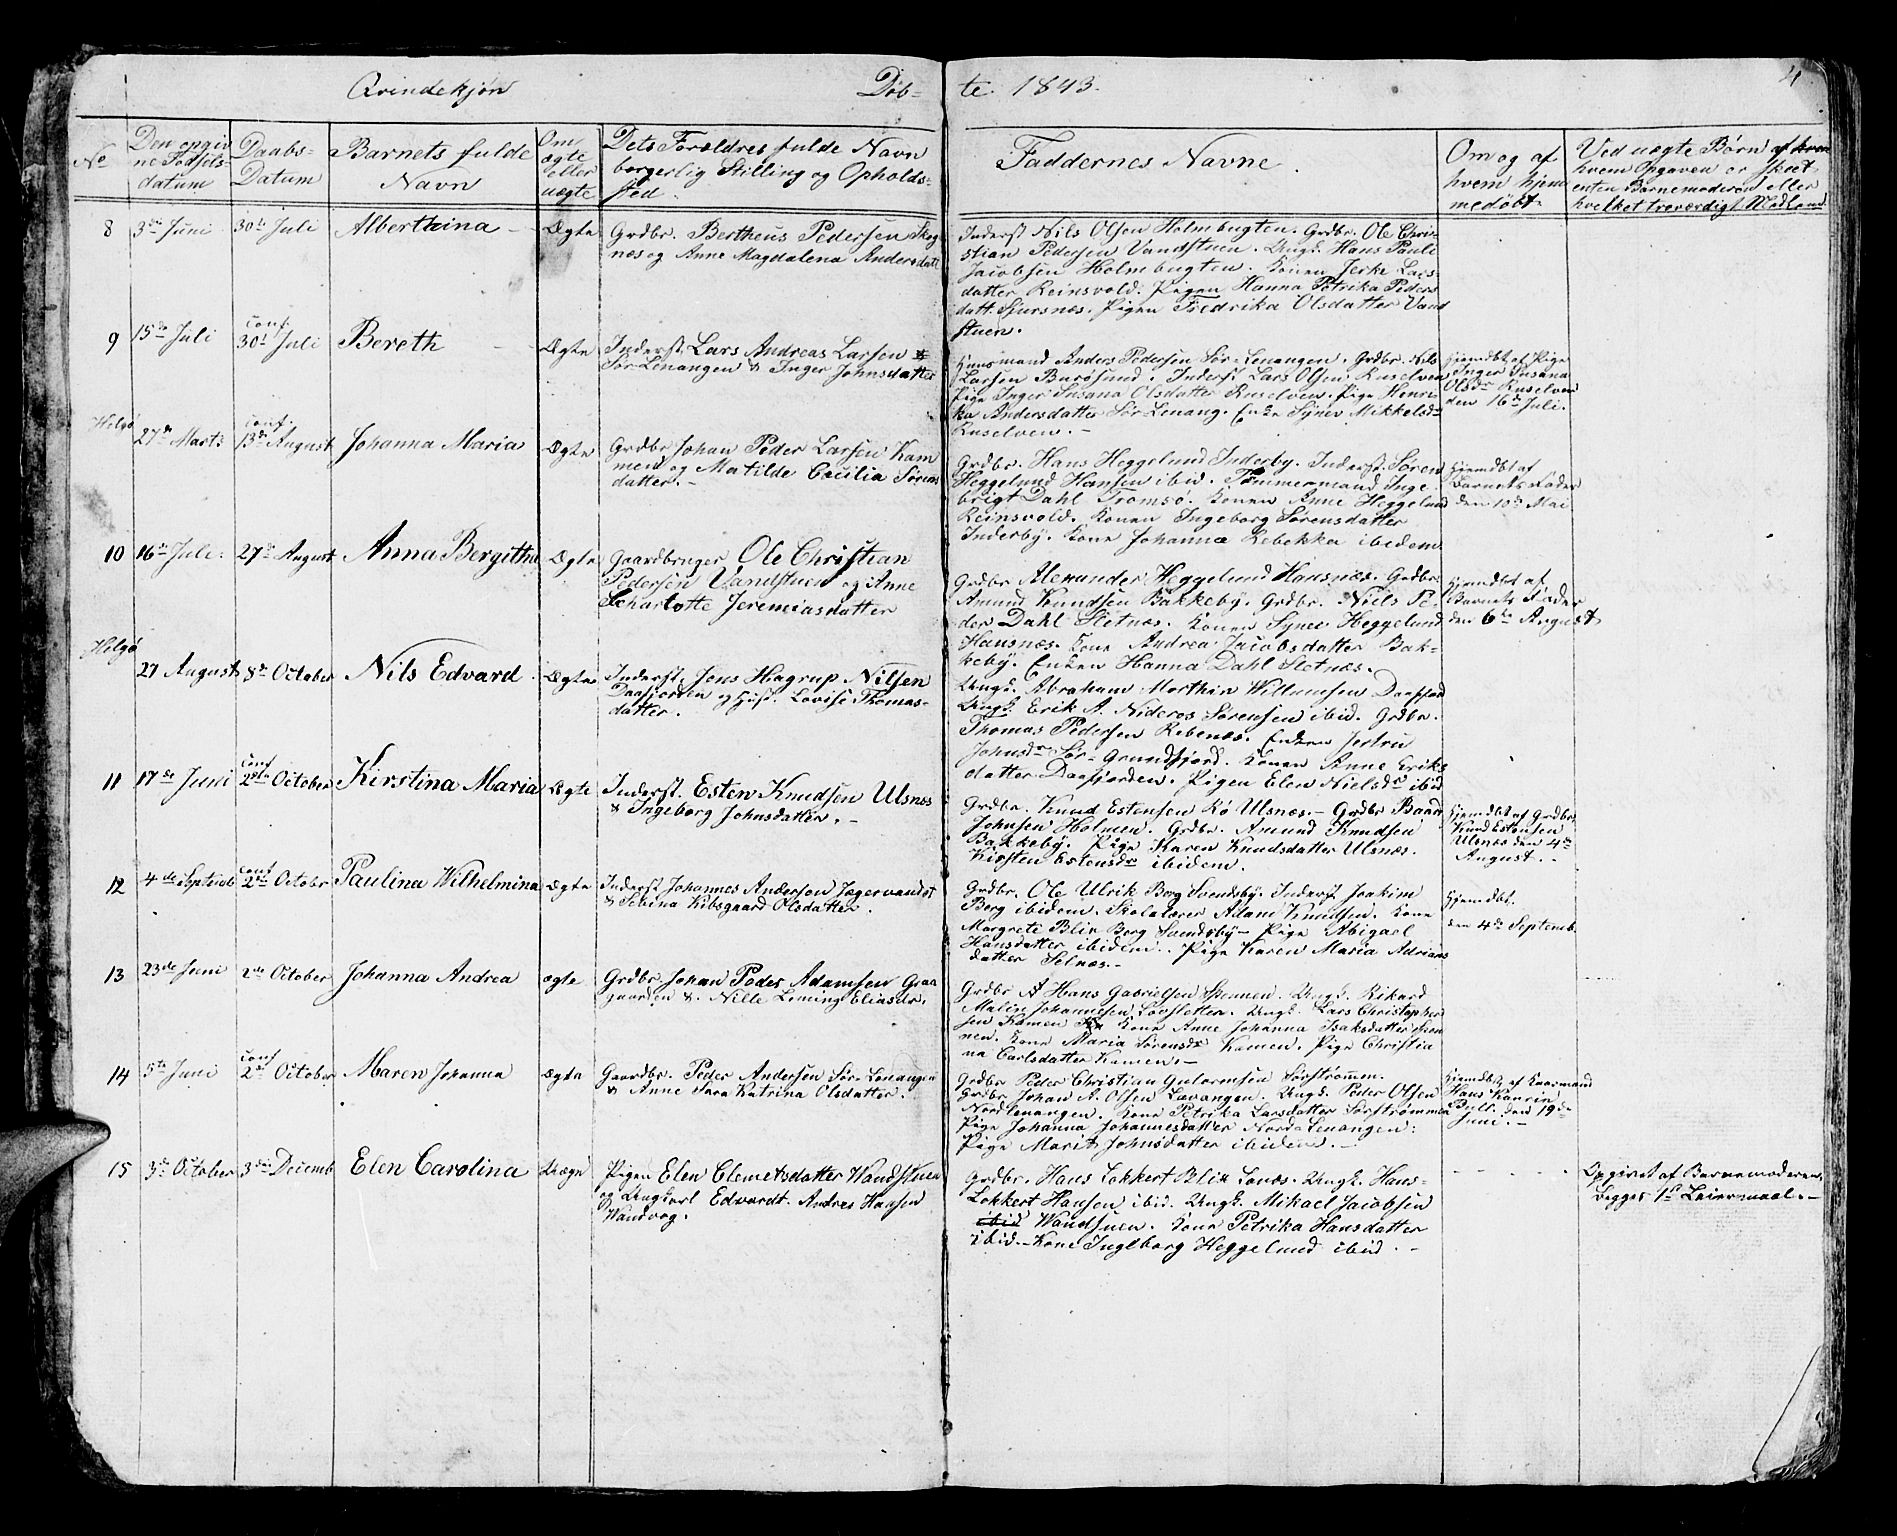 Qvindekjøn Døb-
te 1843.
4
No
Den opgiv
ne Fødsels
datum
Daabs-
Datum
Barnets fulde
Navn
Om
ægte
eller
uægte
Dets Forældres fulde Navn
borgerlig Stilling og Opholds-
sted.
Faddernes Navne.
Om og af
hvem hjem
medøbt
Ved uægte Børn af hvem
hvem Opgaven er skeet
enten Barnemoderen eller
hvilket troværdigt Medlem
8 3die Juni 30te Juli Alberthina Ægte
Grdbr. Bertheus Pedersen Skog
næs og Anne Magdalena Andersdatt
Inderst Nils Olsen Holmbugten. Grdbr. Ole Chri-
stian Pedersen Vandstuen. Ungk. Hans Pauli
Jacobsen Holmbugten. Konen Lars-
datter Reinsvold. Pigen Hanna Petrika Peders
datt. Sjursnæs. Pigen Fredrika Olsdatter Vand
stuen.
9 15de Juli conf 30te Juli Bereth Ægte
Inderst Lars Andreas Larsen
Sør-Lenangen & Inger Johnsdatter
Huusmand Anders Pedersen Sør-Lenangen. Grdbr. Nils
Larsen Burøsund. Inderst Lars Olsen Ruselven
Pige Inger Susana Olsdatter Ruselven. Pige Henri-
ka Andersdatter Sør-Lenang. Enke Synev Mikkelsdr
Ruselven.-
Hjemdbt af Pige
Inger Susana
Olsdr Ruselven
den 16de Juli.
Helgø
27de Marts conf. 13de August Johanna Maria Ægte
Grdbr. Johan Peder Larsen Kam
men og Matilde Cæcilia Sørens
datter.-
Grdbr. Hans Heggelund Inderby. Inderst. Søren
Heggelund Hansen ibid. Tømmermand Inge
brigt Dahl Tromsø. Konen Anne Heggelund
Reinsvold. Konen Ingeborg Sørensdatter
Inderby. Kone Johanna Rebekka ibidem
Hjemdbt af
Barnets Fader
den 10de Mai
10 16de Juli. 27de August Anna Bergitha Ægte
Gaardbruger Ole Christian
Pedersen Vandstuen og Anne
Scharlotte Jeremiasdatter
Grdbr Alexander Heggelund Hansnæs. Grdbr.
Amund Knudsen Bakkeby. Grdbr. Niels Pe-
der Dahl Sletnæs. Konen Synev Heggelund
Hansnæs. Kone Andrea Jacobsdatter Bak-
keby. Enken Hanna Dahl Sletnæs.
Hjemdbt af
Barnets Fader
den 6te August
Helgø
27 August 8de October Nils Edvard Ægte
Inderst Jens Hagrup Nilsen
Daafjorden og Hust. Lovise Thomas-
datter.
Ungk. Abraham Morthin Willumsen Daafjord
Ungk. Erik A. Nideros Sørensen ibid. Grdbr.
Thomas Pedersen Rebenæs. Enken
Johnsdr Sør-Grundfjord. Konen Anne Eriks
datter Daafjorden. Pigen Elen Nielsdr ibid
11 17de Juni conf 2den October Kirstina Maria Ægte
Inderst. Esten Knudsen Ulsnæs
& Ingeborg Johnsdatter.-
Grdbr. Knud Estensen Kø Ulsnæs.- Grdbr Baard
Johnsen Holmen. Grdbr. Amund Knudsen
Bakkeby. Pige Karen Knudsdatter Ulsnæs.
Kirsten Estensdr ibidem.
Hjemdbt af Grdbr.
Knud Estensen
Ulsnæs den 4de
August.-
12 4de Septemb conf 2den Octobr Paulina Wilhelmina Ægte
Inderst Johannes Andersen Jægervandet
& Sebina Kibsgaard Olsdatter.
Grdbr. Ole Ulrik Berg Svendsby. Inderst Joakim
Berg ibidem. Skolelærer Adam Knudsen. Kone
Margrete Blix Berg Svendsby- Pige Abigael
Hansdatter ibidem. Pige Karen Maria Adrians
datter Selnæs.-
Hjemdbt.
den 4de Septemb.
13 23de Juni 2den October Johanna Andrea ægte
Grdbr. Johan Peder Adamsen Graa
gaarden & Nille Leming Eliasdr.
Grdbr Hans Gabrielsen Spennen. Ungk. Rikard
Malin Johannesen Løvsletten. Ungk. Lars Christopher
sen Kamen Kone Anne Johanna Isaksdatter Spen
nen. Kone Maria Sørensdr Kamen. Pige Christia
na Carlsdatter Kamen.-
14 5te Juni conf 2den October Maren Johanna ægte
Gaardbr. Peder Andersen Sør-Lenangen
& Anne Sara Katrina Olsdatter.
Grdbr Peder Christian Gulormsen Sørstrømmen.
Grdbr Johan A. Olsen Lævangen. Ungk. Peder Olsen
Nordlenangen. Kone Petrika Larsdatter Sørstrømmen
Pige Johanna Johannesdatter Nord-Lenangen.
Pige Marit Johnsdatter ibidem.-
Hjemdbt. af Huusmand
Hans
den 19de
Juni.-
15 3de October 3die Decemb Elen Carolina Uægte
Pigen Elen Clemetsdatter Wandstuen
og Ungkarl Edvardt Andreas Hansen
Wandvog.
Grdbr. Hans Lokkert Blix Lonæs. Ungk. Hans-
Lokkert Hansen ibid. Ungk. Mikael Jacobsen
ibid Wandstuen. Kone Petrika Hansdatter
ibid.- Kone Ingeborg Heggelund ibid.-
Opgivet af Barnemoderen
Begges 1ste Leiermaal.-